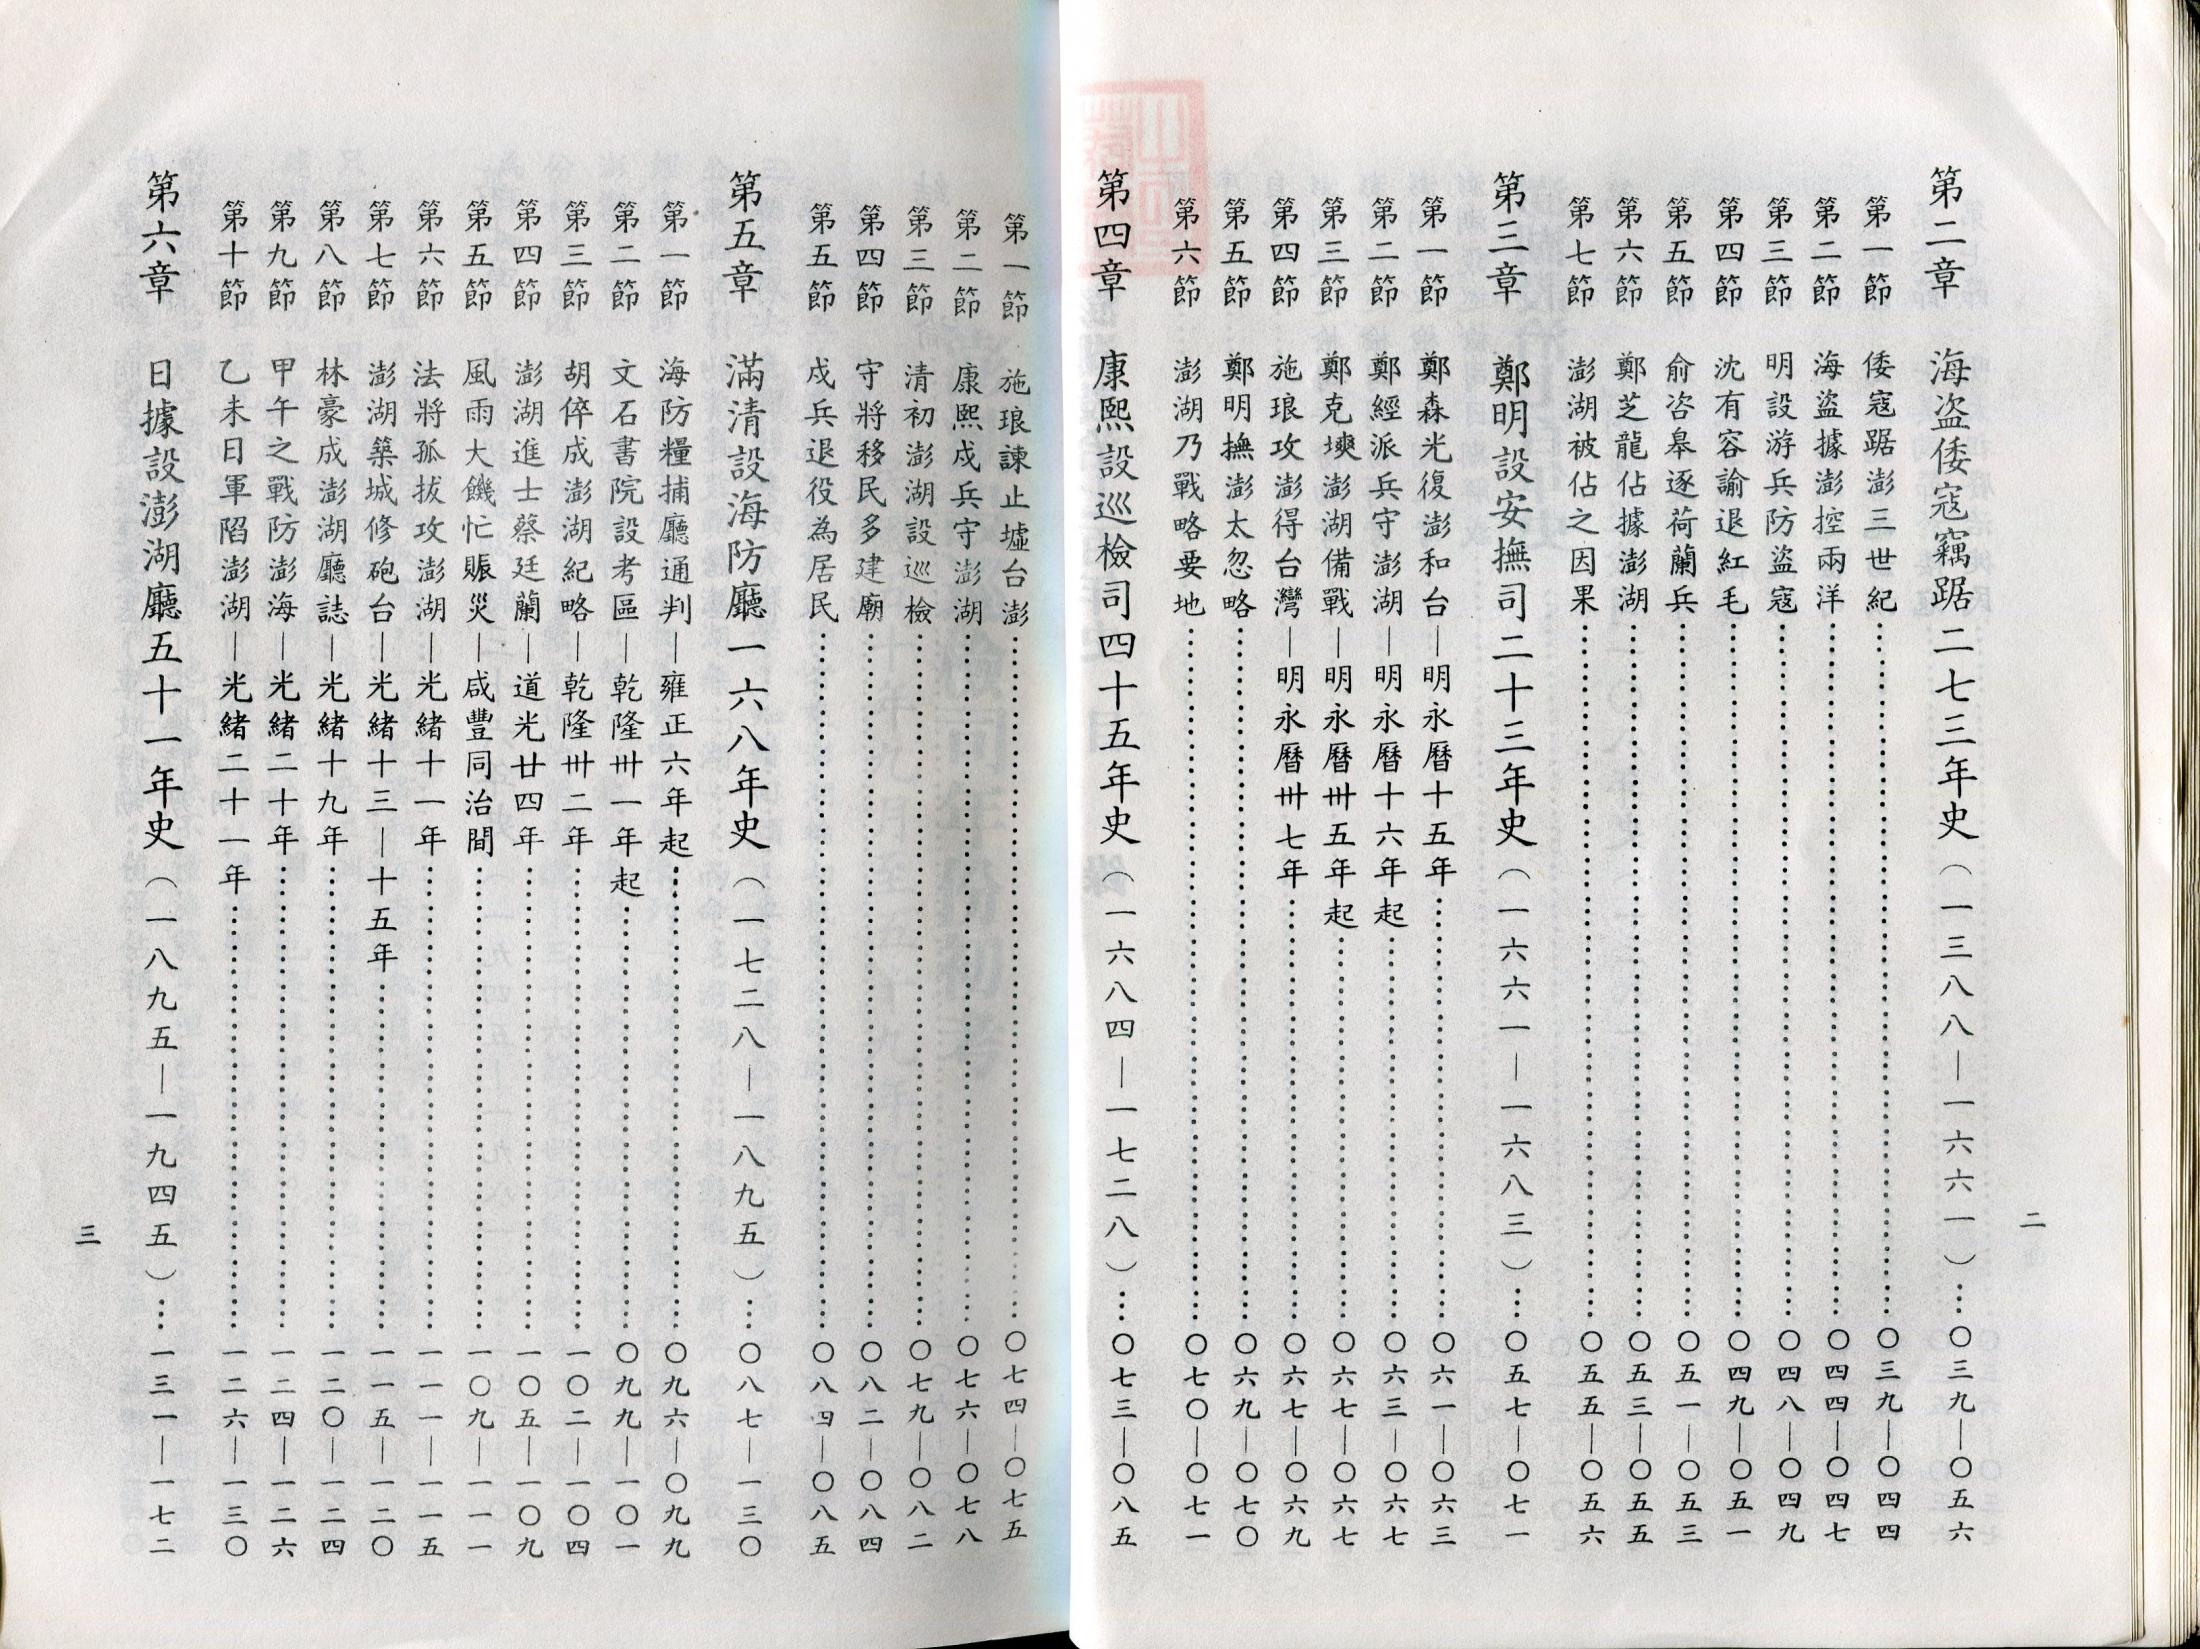 二
第二章　海盗倭寇竊踞二七三年史（一三八八—一六六一）…〇三九—〇五六
第一節　倭寇踞澎三世紀……〇三九—〇四四
第二節　海盜據澎控兩洋……〇四四—〇四七
第三節　明設游兵防盜寇……〇四八—〇四九
第四節　沈有容諭退紅毛……〇四九—〇五一
第五節　俞咨皋逐荷蘭兵……〇五一—〇五三
第六節　鄭芝龍佔據澎湖……〇五三—〇五五
第七節　澎湖被佔之因果……〇五五—〇五六
第三章　鄭明設安撫司二十三年史（一六六一—一六八三）…〇五七—〇七一
第一節　鄭森光復澎和台—明永曆十五年……〇六一—〇六三
第二節　鄭經派兵守澎湖—明永曆十六年起……〇六三—〇六七
第三節　鄭克塽澎湖備戰—明永曆卅五年起……〇六七—〇六七
第四節　施琅攻澎得台灣—明永曆卅七年……〇六七—〇六九
第五節　鄭明撫澎太忽略……〇六九—〇七〇
第六節　澎湖乃戰略要地……〇七〇—〇七一
第四章　康熙設巡檢司四十五年史（一六八四—一七二八）…〇七三—〇八五
第一節　施琅諫止墟台澎……〇七四—〇七五
第二節　康熙戍兵守澎湖……〇七六—〇七八
第三節　清初澎湖設巡檢……〇七九—〇八二
第四節　守將移民多建廟……〇八二—〇八四
第五節　戍兵退役為居民……〇八四—〇八五
第五章　滿清設海防廳一六八年史（一七二八—一八九五）…〇八七—一三〇
第一節　海防糧捕廳通判—雍正六年起……〇九六—〇九九
第二節　文石書院設考區—乾隆卅一年起……〇九九—一〇一
第三節　胡倅成澎湖紀略—乾隆卅二年……一〇二—一〇四
第四節　澎湖進士蔡廷蘭—道光廿四年……一〇五—一〇九
第五節　風雨大饑忙賑災—咸豐同治間……一〇九—一一一
第六節　法將孤拔攻澎湖—光緒十一年……一一一—一一五
第七節　澎湖築城修砲台—光緒十三—十五年……一一五—一二〇
第八節　林豪成澎湖廳誌—光緒十九年……一二〇—一二四
第九節　甲午之戰防澎海—光緒二十年……一二四—一二六
第十節　乙未日軍陷澎湖—光緒二十一年……一二六—一三〇
第六章　日據設澎湖廳五十一年史（一八九五—一九四五）…一三一—一七二
三